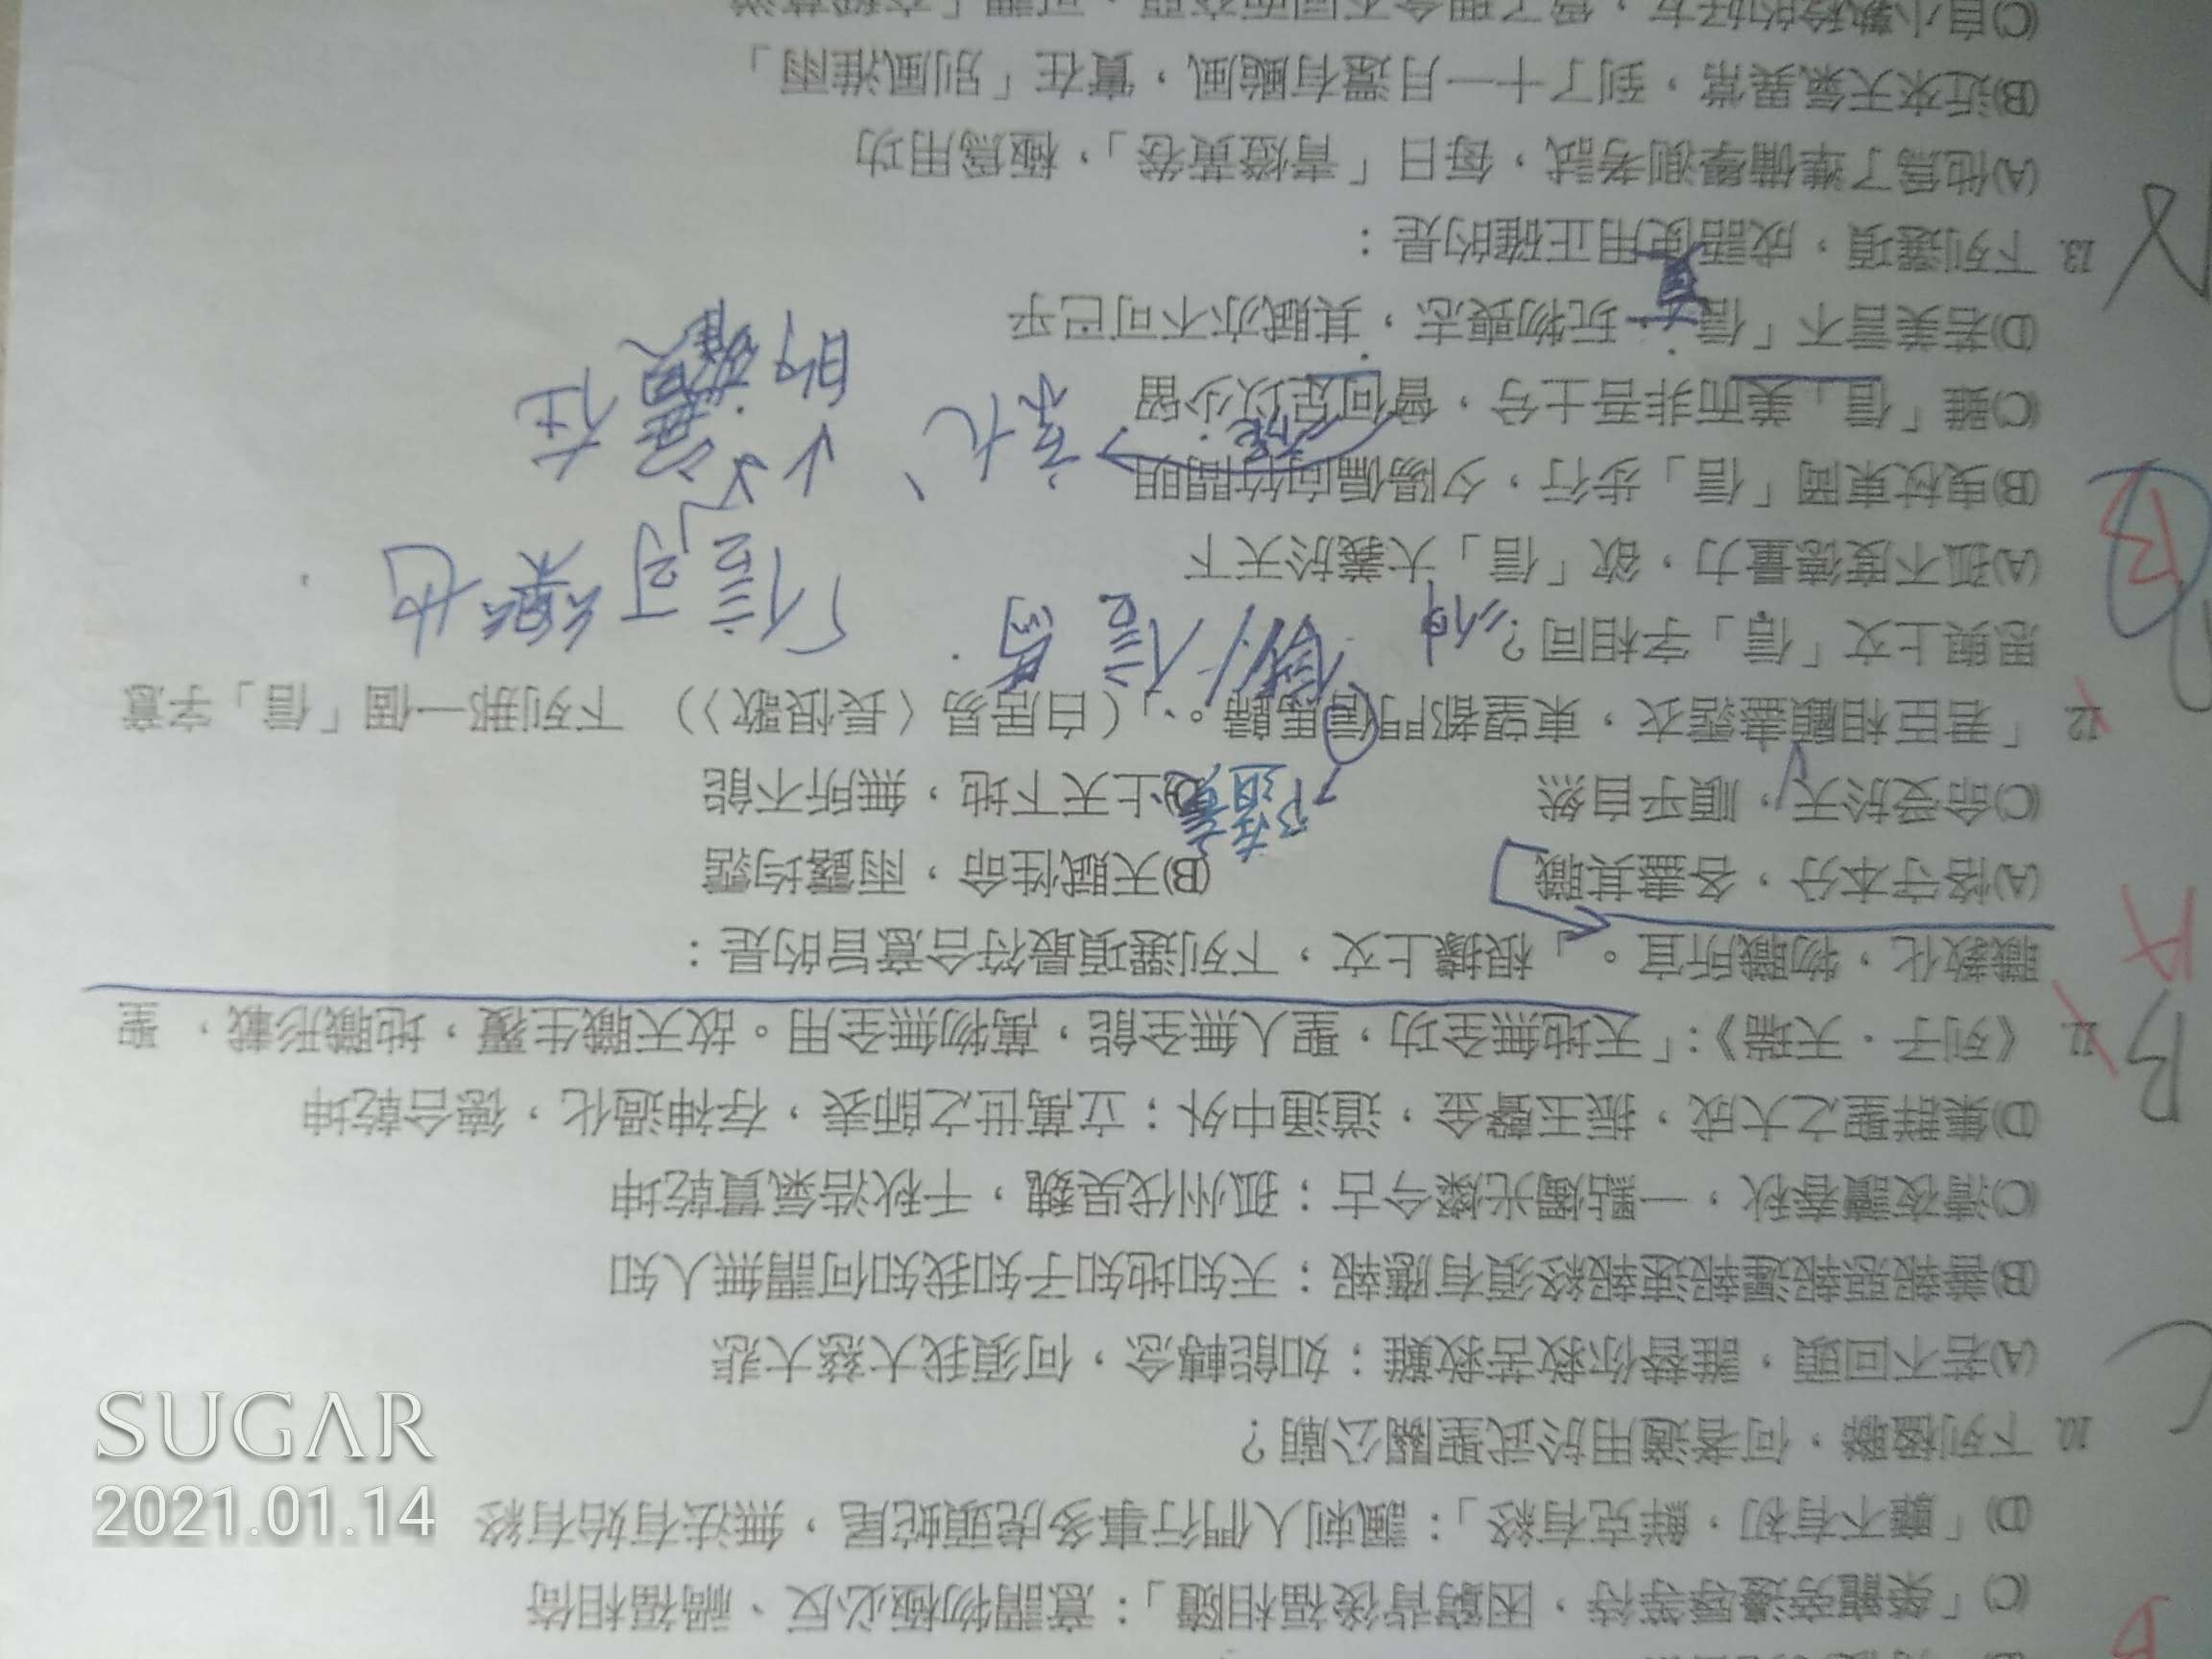 (C)「樂龍旁邊辱等待，困窮背後福相隨」：意謂物極必反、禍福相倚
(D)「靡不有初，鮮克有終」：諷刺人們行事多虎頭蛇尾，無法有始有終
10. 下列楹聯，何者適用於武聖關公廟？
(A)若不回頭，誰替你救苦救難；如能轉念，何須我大慈大悲
(B)善報惡報遲報速報終須有應報；天知地知子知我知何謂無人知
(C)清夜讀春秋，一點燭光燦今古；孤州伐吳魏，千秋浩氣貫乾坤
(D)集群聖之大成，振玉聲金，道通中外；立萬世之師表，存神過化，德合乾坤
11. 《列子．天瑞》：「天地無全功，聖人無全能，萬物無全用。故天職生覆，地職形載，聖
職教化，物職所宜。」根據上文，下列選項最符合意旨的是：
(A)恪守本分，各盡其職
(B)天賦性命，雨露均霑
(C)命受於天，順乎自然
(D)上天下地，無所不能
12. 「君臣相顧盡霑衣，東望都門信馬歸。」（白居易〈長恨歌〉） 下列那一個「信」字意
思與上文「信」字相同？
(A)孤不度德量力，欲「信」大義於天下
伸
(B)曳杖東岡「信」步行，夕陽偏向竹間明
(C)雖「信」美而非吾土兮，曾何足以少留
(D)若美言不「信」，玩物喪志，其賦亦不可已乎
13. 下列選項，成語使用正確的是：
(A)他為了準備學測考試，每日「青燈黃卷」，極為用功
(B)近來天氣異常，到了十一月還有颱風，實在「別風淮雨」
(C)自小熟稔的好友，為了理念不同而交惡，可謂「
B
A
B
B
C
信可樂也
的
在